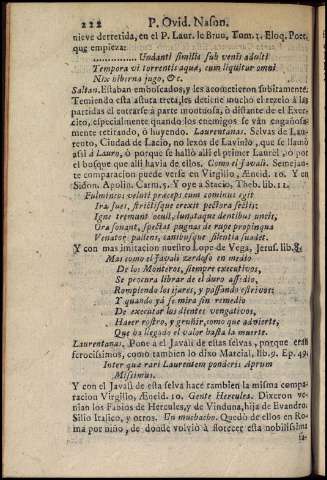 222 P. Ovid. Nason.
nieve derretida, en el P. Laur. le Brun, Tom. 1. Eloq. Poet.
que empieza:
............... Undanti similis sub venis adulti
Tempora vi torrentis aquæ, cum liquitur omni
Nix hiberna jugo, &c.
Saltan. Estaban emboscados, y les acometieron subitamente.
Temiendo esta astuta treta, les detiene mucho el rezelo à las
partidas el entrarse à parte montuosa, ò distante de el Exer-
cito, especialmente quando los enemigos se vàn engañosa-
mente retirando, ò huyendo. Laurentanas. Selvas de Lau-
rento, Ciudad de Lacio, no lexos de Lavinio, que se llamò
assi à Lauro, ò porque se hallò alli el primer Laurèl, ò por
el bosque que allì havia de ellos. Como el Javali. Semejan-
te comparacion puede verse en Virgilio, Æneid. 10. Y en
Sidon. Apolin. Carm. 5. Y oye a Stacio, Theb. lib. 11.
Fulmineos veluti præceps cum cominus egit
Ira sues, strictisque erexit pectora setis:
Igne tremunt oculi, lunataque dentibus uncis,
Ora sonant, spectat pugnas de rupe propinqua
Venator pallens, canibusque silentia suadet.
Y con mas imitacion nuestro Lope de Vega, Jerus. lib. 8.
Mas como el Javali zerdoso en medio
De los Monteros, siempre executivos,
Se procura librar de el duro assedio,
Rompiendo los ijares, y passando estrivos;
Y quando yà se mira sin remedio
De executar los dientes vengativos,
Hacer rostro, y gruñir, como que advierte,
Que ha llegado el valor hasta la muerte.
Laurentanas. Pone al Javali de estas selvas, porque eran
ferocissimos, como tambien lo dixo Marcial, lib. 9. Ep. 49.
Inter quæ rari Laurentem ponderis Aprum
Misimus.
Y con el Javali de esta selva hace tambien la misma compa-
racion Virgilio, Æneid. 10. Gente Hercules. Dixeron ve-
nian los Fabios de Hercules, y de Vinduna, hija de Evandro.
Silio Italico, y otros. Un muchacho. Quedò de ellos en Ro-
ma por niño, de donde volviò à florecer esta nobilissima
fa-